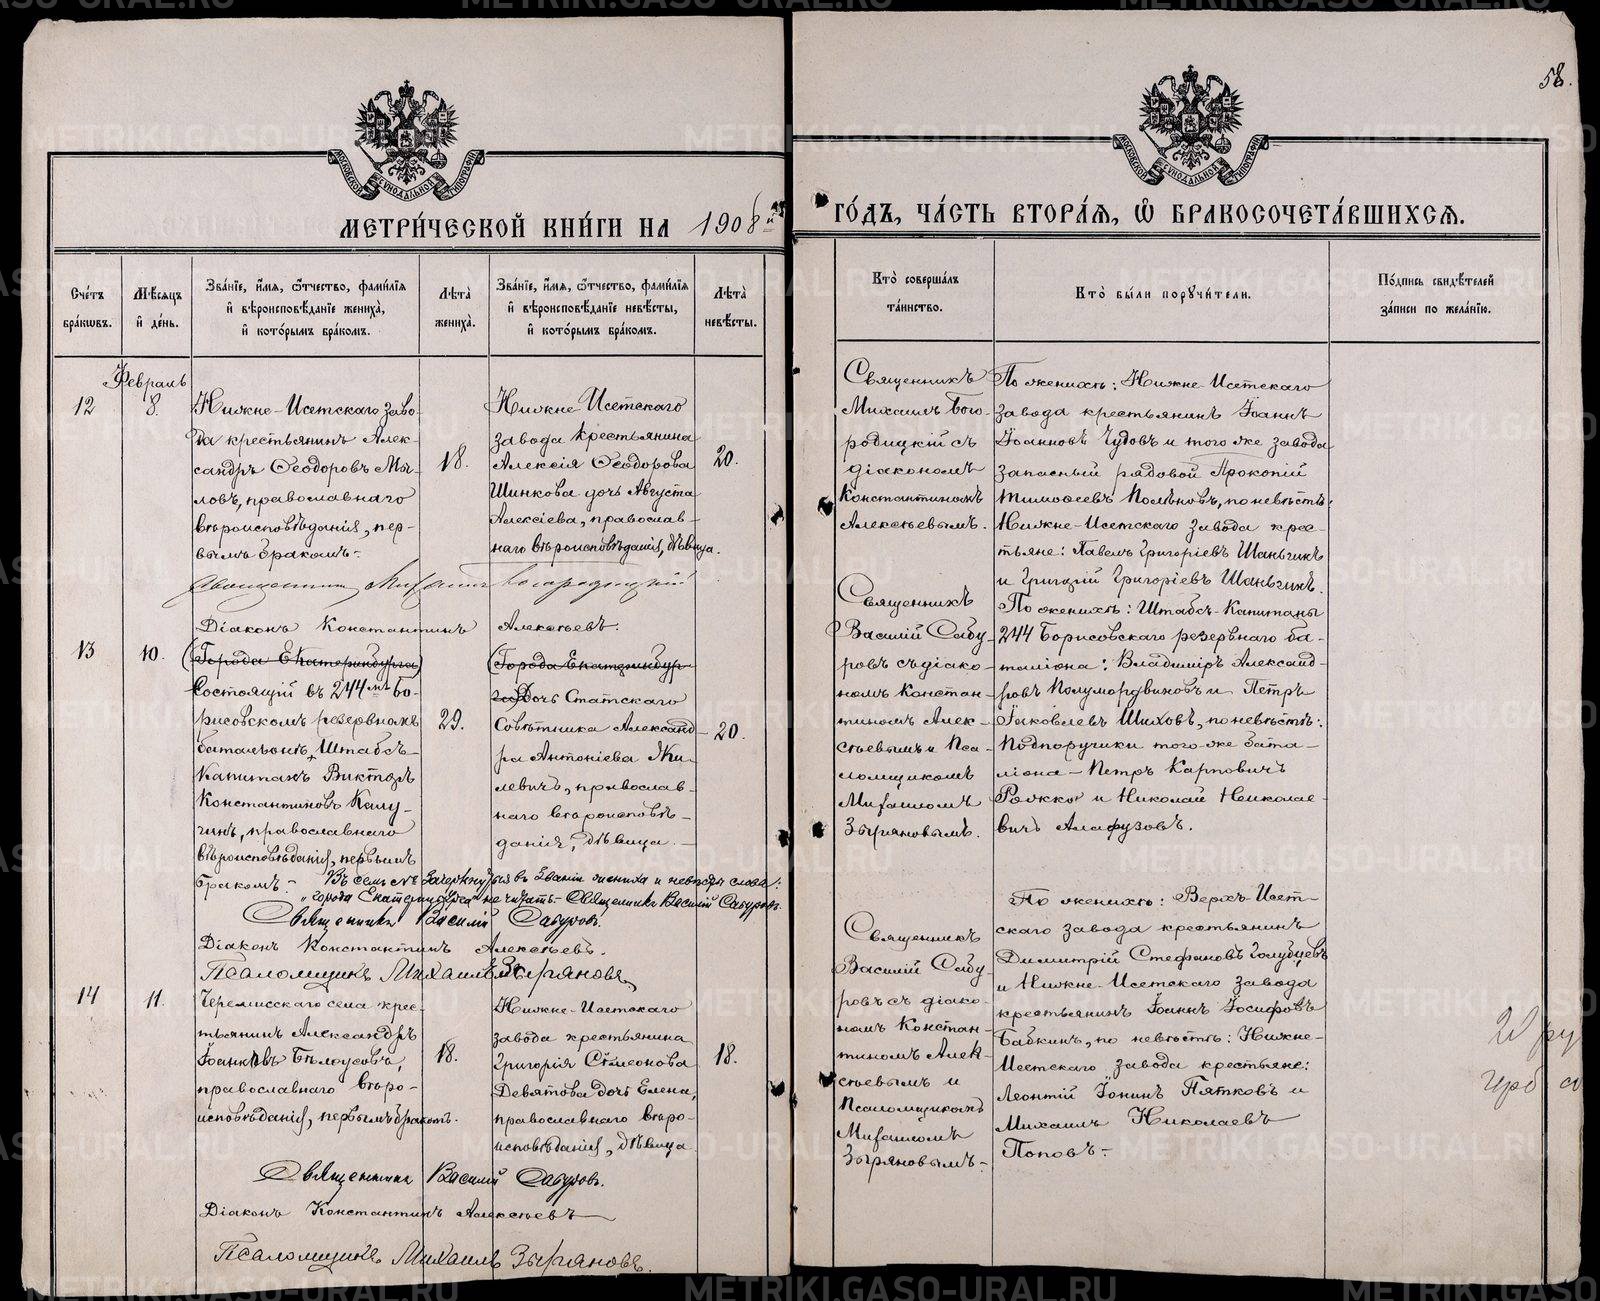 58.
МОСКОВСКОЙ СУНОДАЛЬНОЙ ТИПОГРАФІИ
МОСКОВСКОЙ СУНОДАЛЬНОЙ ТИПОГРАФІИ
МЕТРИ́ЧЕСКОЙ КНИ́ГИ НА 1908 й
ГО́ДЪ, ЧА́СТЬ ВТОРА́Я, Ѽ БРАКОСОЧЕТА́ВШИХСЯ.
Сче́тъ
бра́кωвъ.
Мѣ́сяцъ
и҆ де́нь.
Зва́нїе, и҆́мя, ѻ҆́тчество, фами́лїя
и҆ вѣроисповѣ́данїе жениха̀,
и҆ кото́рымъ бра́комъ.
Лѣ́та
жениха̀.
Зва́нїе, и҆́мя, ѻ҆́тчество, фами́лїя
и҆ вѣроисповѣ́данїе невѣ́сты,
и҆ кото́рымъ бра́комъ.
Лѣ́та
невѣ́сты.
Кто̀ соверша́лъ
та́инство.
Кто̀ бы́ли порꙋчи́тели.
По́дпись свидѣ́телей
за́писи по жела́нїю.
Февраль
12
8.
Нижне-Исетскаго заво-
да крестьянинъ Алек-
сандръ Ѳеодоровъ Мы-
ловъ, православнаго
вѣроисповѣданія, пер-
вымъ бракомъ.-
18.
Нижне Исетскаго
завода крестьянина
Алексія Ѳеодорова
Шинкова дочь Августа
Алексіева, православ-
наго вѣроисповѣданія, дѣвица.
20.
Священникъ
Михаилъ Бого-
родицкій съ
діакономъ
Константиномъ
Алексѣевымъ.
По женихѣ: Нижне-Исетскаго
завода крестьянинъ Іоаннъ
Іоанновъ Чудовъ и того же завода
запасный рядовой Прокопій
Тимоѳеевъ Полѣновъ, по невѣстѣ:
Нижне-Исетскаго завода крес-
тьяне: Павелъ Григоріевъ Шаньгинъ
и Григорій Григоріевъ Шаньгинъ.
Священникъ Михаилъ Богородицкій
Діаконъ Константинъ Алексѣевъ.
13
10.
(Города Екатеринбурга)
Состоящій въ 244мъ Бо-
рисовскомъ резервномъ
баталіонѣ, Штабсъ-
Капитанъ Викторъ
Константиновъ Калу-
гинъ, православнаго
вѣроисповѣданія, первымъ
бракомъ.-
29.
(Города Екатеринбур-
га) Дочь Статскаго
Совѣтника Александ-
ра Антоніева Жи-
левичъ, православ-
наго вѣроисповѣ-
данія, дѣвица.-
20.
Священникъ
Василій Сабу-
ровъ съ діако-
номъ Констан-
тиномъ Алек-
сѣевымъ и Пса-
ломщикомъ
Михаиломъ
Зыряновымъ.
По женихѣ: Штабсъ-Капитаны
244 Борисовскаго резервнаго ба-
таліона: Владиміръ Александ-
ровъ Полумордвиновъ и Петръ
Яковлевъ Шиховъ, по невѣстѣ:
Подпоручики того-же бата-
ліона-Петръ Карповичъ
Рожко и Николай Николае-
вичъ Алафузовъ.
Въ семъ № зачеркнутыя въ званіи жениха и невѣсты слова:
„города Екатеринбурга" не читать-Священникъ Василій Сабуровъ.
Священникъ Василій Сабуровъ.
Діаконъ Константинъ Алексѣевъ.
Псаломщикъ Михаилъ Зыряновъ.
14
11.
Черемисскаго села крес-
тьянинъ Александръ
Іоанновъ Бѣлоусовъ,
православнаго вѣро-
исповѣданія, первымъ бракомъ.
18.
Нижне-Исетскаго
завода крестьянина
Григорія Сѵмеонова
Девятова дочь Елена,
православнаго вѣро-
исповѣданія, дѣвица
18.
Священникъ
Василій Сабу-
ровъ съ діако-
номъ Констан-
тиномъ Алек-
сѣевымъ и
Псаломщикомъ
Михаиломъ
Зыряновымъ-
По женихѣ: Верхъ-Исет-
скаго завода крестьянинъ
Димитрій Стефановъ Голубцевъ
и Нижне-Исетскаго завода
крестьянинъ Іоаннъ Іосифовъ
Бабкинъ, по невѣстѣ: Нижне-
Исетскаго завода крестьяне:
Леонтій Іонинъ Пятковъ и
Михаилъ Николаевъ
Поповъ-
Священникъ Василій Сабуровъ.
Діаконъ Константинъ Алексѣевъ
Псаломщикъ Михаилъ Зыряновъ.
METRIKI.GASO-URAL.RU